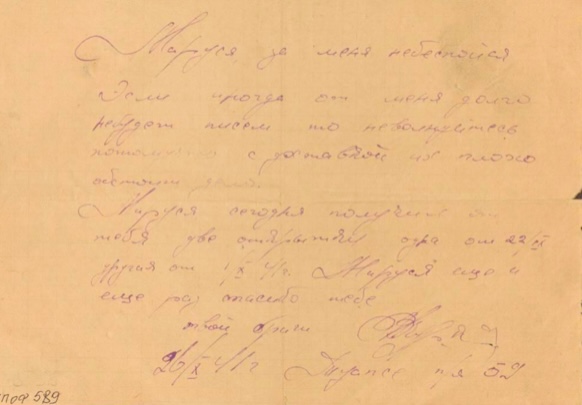 Маруся за меня небеспокойся
Если иногда от меня долго
небудет писем то неволнуйтесь
потому что с доставкой их плохо
обстоит дело.
Маруся сегодня получил от
тебя две открытки одна от 22/IX
другая от 1/X 41г. Маруся еще и
еще раз спасибо тебе
твой
26/X 41г Туапсе п/я 52
589